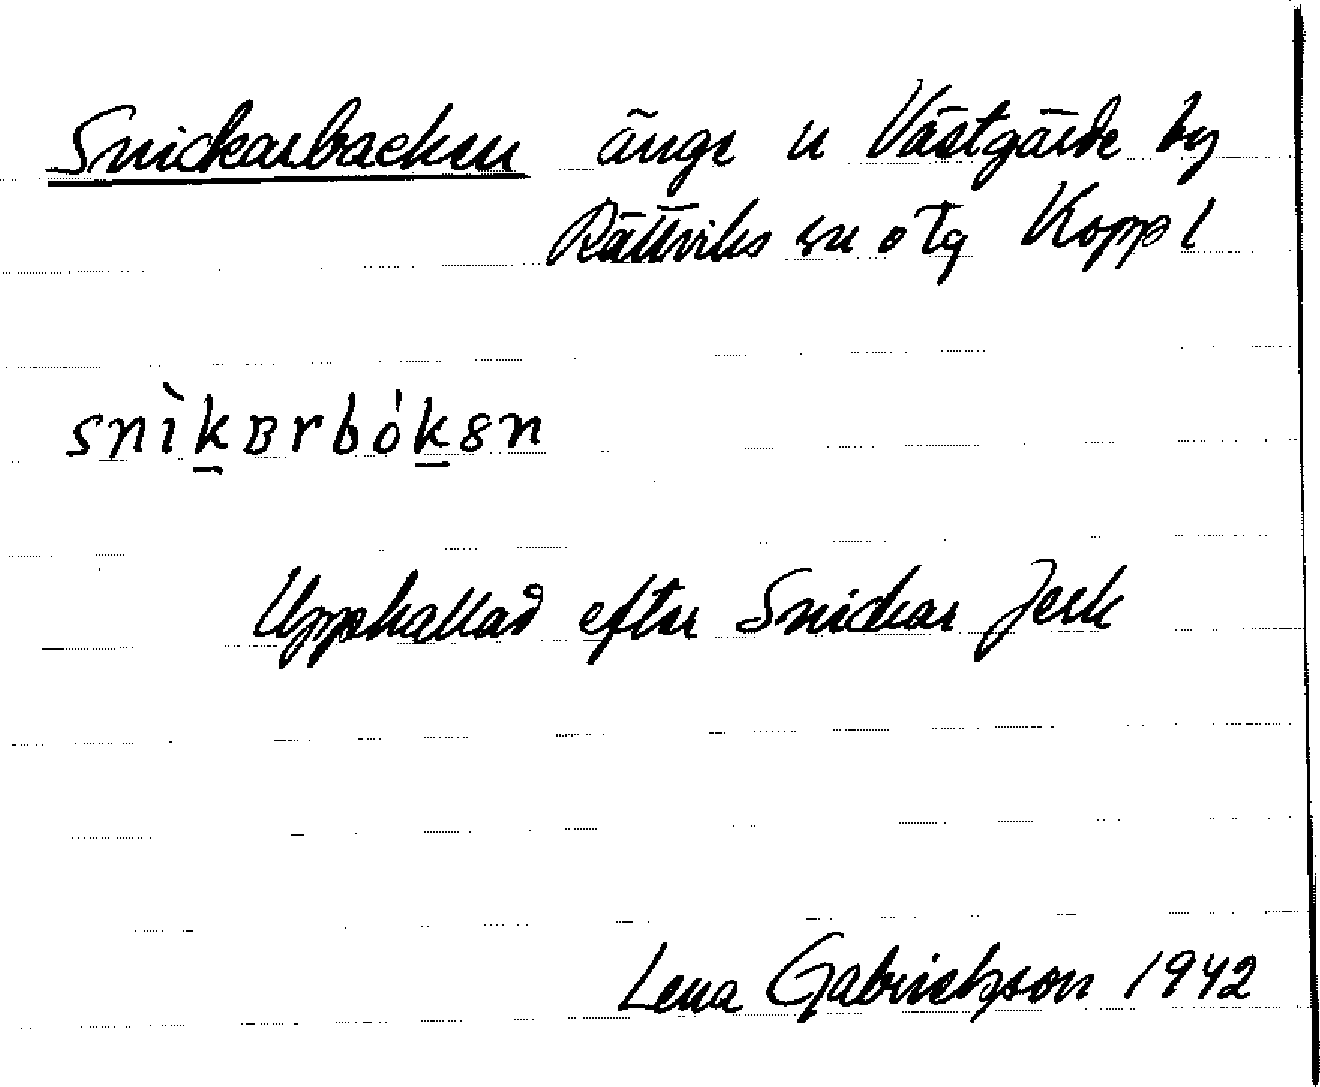 Snickarbacken änge n Västgärde by
Rättviks sn o tg Koppl
snìkʙrbókən
Uppkallad efter Snickar Jerk
Lena Gabrielsson 1942